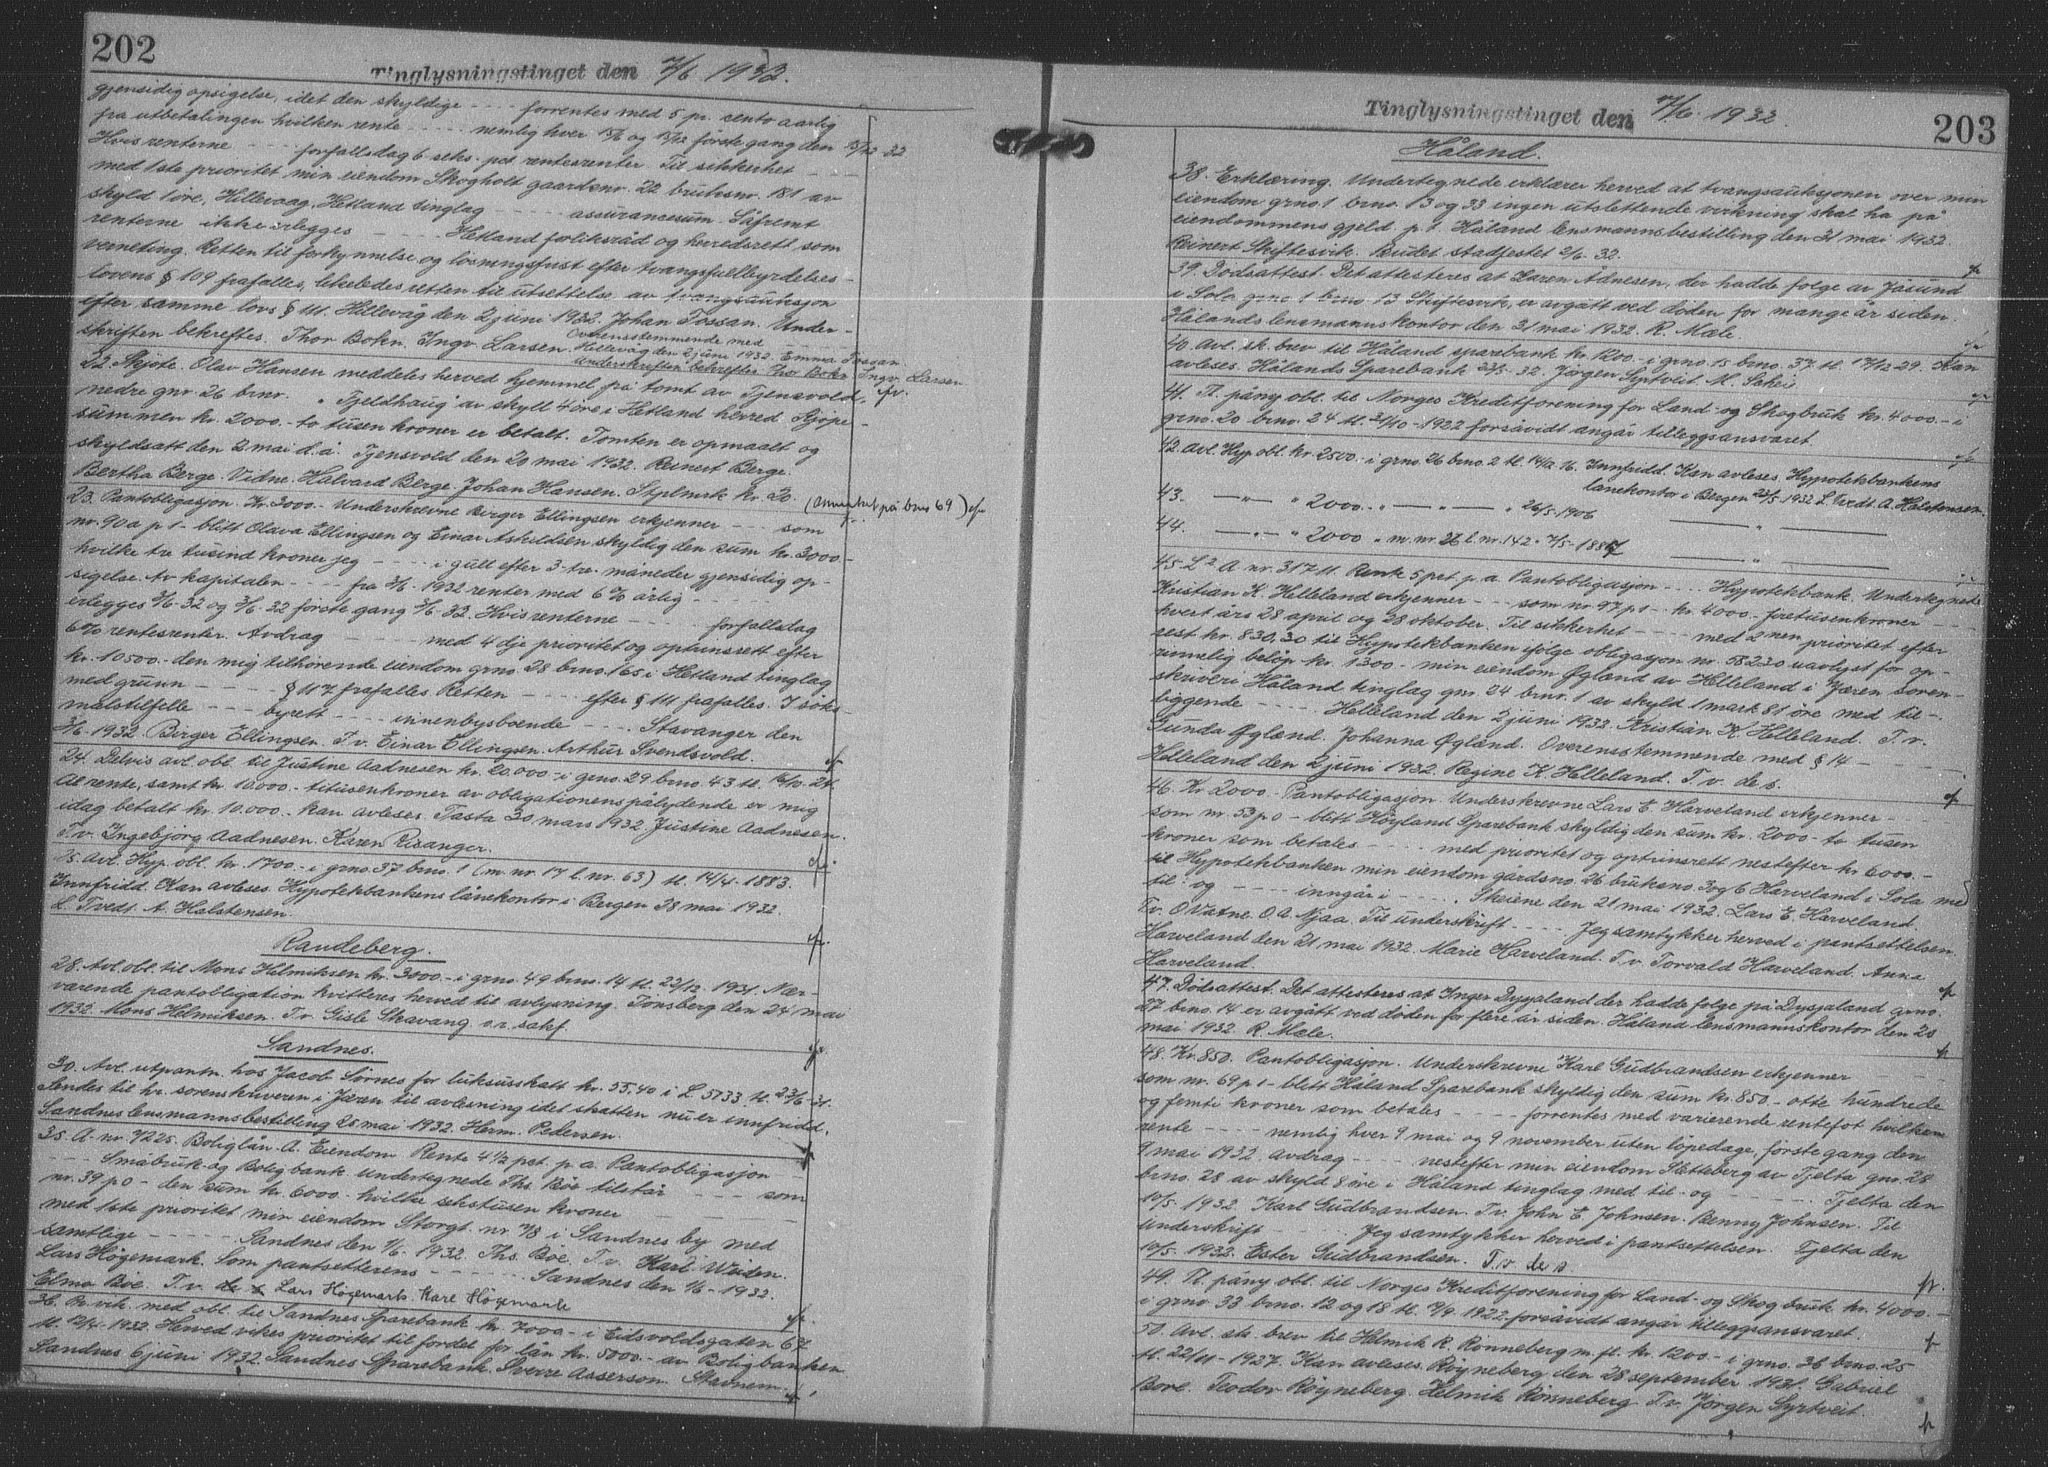 202
Tinglysningstinget den 7/6 1932.
gjensidig opsigelse, idet den skyldige - - - - forrentes med 5 pr. cento aarlig
fra utbetalingen hvilken rente - - - - nemlig hver 15/6 og 15/12 første gang den 15/12 32
Hvis renterne - - - - forfallsdag 6 seks. pct rentesrenter Til sikkerhet - -
med 1ste prioritet min eiendom Skogholt gaardsnr. 22 bruksnr. 181 av
skyld 1 øre, Hillevaag, Hetland tinglag - - - - assurancesum. Såfremt
renterne ikke erlegges - - - - Hetland forliksråd og herredsrett som
verneting. Retten til forkynnelse og løsningsfrist efter tvangsfullbyrdelses-
lovens § 109 frafalles, likeledes retten til utsettelse av tvangsauksjon
efter samme lovs § 111. Hillevåg den 2 juni 1932. Johan Tossan. Under-
skriften bekreftes. Thor Bohn. Ingv. Larsen. Overensstemmende med - - - -
Hillevåg den 2 juni 1932. Emma Tossan
Underskriften bekreftes Thor Bohn Ingv. Larsen
22. Skjøte. Olav Hansen meddeles herved hjemmel på tomt av Tjensvold,
nedre gnr 26 brnr. " Fjeldhaug" av skyll 4 øre i Hetland herred. Kjøpe-
summen kr. 2000.- to tusen kroner er betalt. Tomten er opmaalt og
skyldsatt den 2 mai d.å. Tjensvold den 20 mai 1932. Reinert Berge.
Bertha Berge. Vidne: Halvard Berge. Johan Hansen. Stplmrk kr. 20.
(Anmerket på bno 69)
23. Pantobligasjon. Kr. 3000.- Underskrevne Birger Ellingsen erkjenner - - - som
nr. 90 a p 1 - blitt Olava Ellingsen og Einar Askildsen skyldig den sum kr. 3000-
hvilke tre tusind kroner jeg - - - - i gull efter 3-tre- måneder gjensidig op-
sigelse. Av kapitalen - - - - fra 3/6-1932 renter med 6% årlig - - - -
erlegges 3/6-32 og 3/6-32 første gang 3/6-32. Hvis renterne - - - - forfallsdag
6% rentesrenter. Avdrag - - - - med 4 dje prioritet og optrinsrett efter
kr. 10500.- den mig tilhørende eiendom grno 28 brno. 165 i Hetland tinglag
med grunn - - - - § 117 frafalles. Retten - - - - efter § 111 frafalles. I søks-
målstilfelle - - - - byrett - - - - innenbysboende - - - - Stavanger den
3/6-1932 Birger Ellingsen. T.v. Einar Ellingsen. Arthur Svendsvold.
24. Delvis avl. obl. til Justine Aadnesen kr. 20.000.- i grno. 29 brno. 43 tl. 16/10-24.
Al rente, samt kr. 10.000.- titusenkroner av obligationens pålydende er mig
idag betalt kr. 10.000.- kan avleses. Tasta 30 mars 1932. Justine Aadnesen.
T.v. Ingebjørg Aadnesen. Karen Risanger.
25. Avl. Hyp. obl. kr. 1700.- i grno. 37 brno. 1 (m. nr. 17 l. nr. 63) tl. 14/4-1883.
Innfridd. Kan avleses. Hypotekbankens lånekontor i Bergen 28 mai 1932.
L. Tvedt. A. Halstensen.
Randeberg.
28. Avl. obl. til Mons Helmiksen kr. 3000.- i grno. 49 brno. 14 tl. 22/12-1931. Nær-
værende pantobligation kvitteres herved til avlysning. Tønsberg den 24 mai
1932. Mons Helmiksen. T.v. Gisle Skavang o.r. sakf.
Sandnes.
30. Avl. utpantn. hos Jacob Sørnes for luksusskatt kr. 55.40 i L 5733 tl. 23/6-31.
Sendes til hr. sorenskriveren i Jæren til avlesning idet skatten nu er innfridd.
Sandnes lensmannsbestilling 25 mai 1932. Herm. Pedersen.
35. A. nr. 7225. Boliglån. A. Eiendom. Rente 4 1/2 pct. p. a. Pantobligasjon - -
- - - - Småbruk- og Boligbank. Undertegnede Ths. Bøe tilstår - - - - som
nr. 39 p 0 - den sum kr. 6000.- hvilke sekstusen kroner - - - -
med 1ste prioritet min eiendom Storgt. nr 78 i Sandnes by med
samtlige - - - - Sandnes den 1/6-1932. Ths. Bøe. T.v. Karl Weiden.
Lars Høgemark. Som pantsetterens - - - - Sandnes den 1/6-1932.
Elma Bøe. T.v. de s. Lars Høgemark. Kare Høgemark
36. Pr. vik. med obl. til Sandnes Sparebank kr. 7000.- i Eidsvoldsgaten 67
tl. 12/4-1932. Herved vikes prioritet til fordel for lån kr. 5000.- av Boligbanken
Sandnes 6 juni 1932. Sandnes Sparebank. Sverre Asserson. Stavnem.
203
Tinglysningstinget den 7/6-1932.
Håland.
38. Erklæring. Undertegnede erklærer herved at tvangsauksjonen over min
eiendom grno. 1 brno. 13 og 33 ingen utslettende virkning skal ha på
eiendommens gjeld. p.t. Håland lensmannsbestilling den 31 mai 1932.
Reinert Stiftesvik. Budet stadfestet 2/6 32.
39. Dødsattest. Det attesteres at Karen Ådnesen, der hadde følge av Jåsund
i Sola grno 1 brno 13 Stiftesvik, er avgått ved døden for mange år siden.
Hålands lensmannskontor den 31 mai 1932. R. Mæle.
40. Avl. sk. brev til Håland sparebank kr. 1200.- i grno 15 brno. 37 tl. 17/12 29. Kan
avleses. Hålands Sparebank 23/5-32. Jørgen Syrtveit. M. Skeie
41. Tl. påny obl. til Norges Kreditforening for Land- og Skogbruk kr. 4000.- i
grno. 20 brno. 24 tl. 31/10-1922 forsåvidt angår tilleggsansvaret
42. Avl. Hyp. obl. kr. 2500.- i grno. 26 brno. 2 tl. 14/12 16. Innfridd. Kan avleses. Hypotekbankens
lånekontor i Bergen 23/5-1932 L. Tvedt. A. Halstensen.
43. — " — " 2000.- " — " — " 26/5-1906 — " —
44. — " — " 2000 " m. nr 26 l. nr. 142 " 7/5-1887 — " —
45. L² A. nr. 31711. Rente 5 pct. p. a. Pantobligasjon - - - - Hypotekbank. Undertegnede
Kristian K. Helleland erkjenner - - - som nr 97 p 1 - kr. 4000.- firetusenkroner - -
hvert års 28 april og 28 oktober. Til sikkerhet - - - - med 2nen prioritet efter
rest kr. 830,30 til Hypotekbanken ifølge obligasjon nr. 58230 uavlyst for op-
rinnelig beløp kr. 1300.- min eiendom Øgland av Helleland i Jæren soren-
skriveri Håland tinglag gnr. 24 brnr. 1 av skyld 1 mark 81 øre med til-
liggende - - - - Helleland den 2 juni 1932. Kristian K. Helleland. T.v.
Gunda Øgland. Johanna Øgland. Overensstemmende med § 14 - - - -
Helleland den 2 juni 1932. Regine K. Helleland. T.v. de s.
46. Kr. 2000.- Pantobligasjon. Underskrevne Lars E. Harveland erkjenner - -
som nr. 53 p 0 - blitt Høyland Sparebank skyldig den sum kr. 2000.- to tusen
kroner som betales - - - - med prioritet og optrinsrett nestefter kr. 6000.-
til Hypotekbanken min eiendom gårdsno. 26 bruksno. 3 og 6 Harveland i Sola med
til- og - - - - inngår i - - - - . Skeiene den 21 mai 1932. Lars E. Harveland.
T.v. O. Vatne. O. A. Njaa. Til underskrift - - - - Jeg samtykker herved i pantsettelsen.
Harveland den 21 mai 1932. Marie Harveland. T.v. Torvald Harveland. Anna
Harveland.
47. Dødsattest. Det attesteres at Inger Dysjaland der hadde følge på Dysjaland grno.
27 brno. 14 er avgått ved døden for flere år siden. Håland lensmannskontor den 20
mai 1932. R. Mæle.
48. Kr. 850. Pantobligasjon. Underskrevne Karl Gudbrandsen erkjenner - -
som nr. 69 p 1 - blitt Håland Sparebank skyldig den sum kr. 850.- otte hundrede
og femti kroner som betales - - - - forrentes med varierende rentefot hvilken
rente - - - - nemlig hver 9 mai og 9 november uten løpedage, første gang den
9 mai 1932. Avdrag - - - - nestefter min eiendom Sletteberg av Tjelta gnr. 28
brno. 28 av skyld 8 øre i Håland tinglag med til- og - - - - Tjelta den
10/5-1932 Karl Gudbrandsen. T.v. John E. Johnsen. Benny Johnsen. Til
underskrift - - - - Jeg samtykker herved i pantsettelsen. Tjelta den
10/5-1932. Ester Gudbrandsen. T.v. de s.
49. Tl. påny obl. til Norges Kreditforening for Land- og Skogbruk kr. 4000.-
i grno. 33 brno. 12 og 18 tl. 7/9-1922 forsåvidt angår tilleggsansvaret.
50. Avl. sk. brev til Helmik R. Rønneberg m. fl. kr. 1200.- i grno. 36 brno. 25
tl. 22/11-1927. Kan avleses. Røyneberg den 28 september 1931. Gabriel
Bore. Teodor Røyneberg. Helmik Rønneberg. T.v. Jørgen Syrtveit.